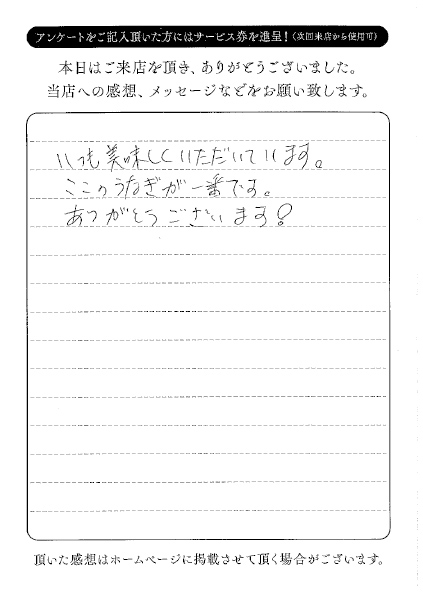 アンケートをご記入頂いた方にはサービス券を進呈!(次回来店から使用可)
本日はご来店を頂き、ありがとうございました。
当店への感想、メッセージなどをお願い致します。
いつも美味しくいただいています。
ここのうなぎが一番です。
ありがとうございます!
頂いた感想はホームページに掲載させて頂く場合がございます。